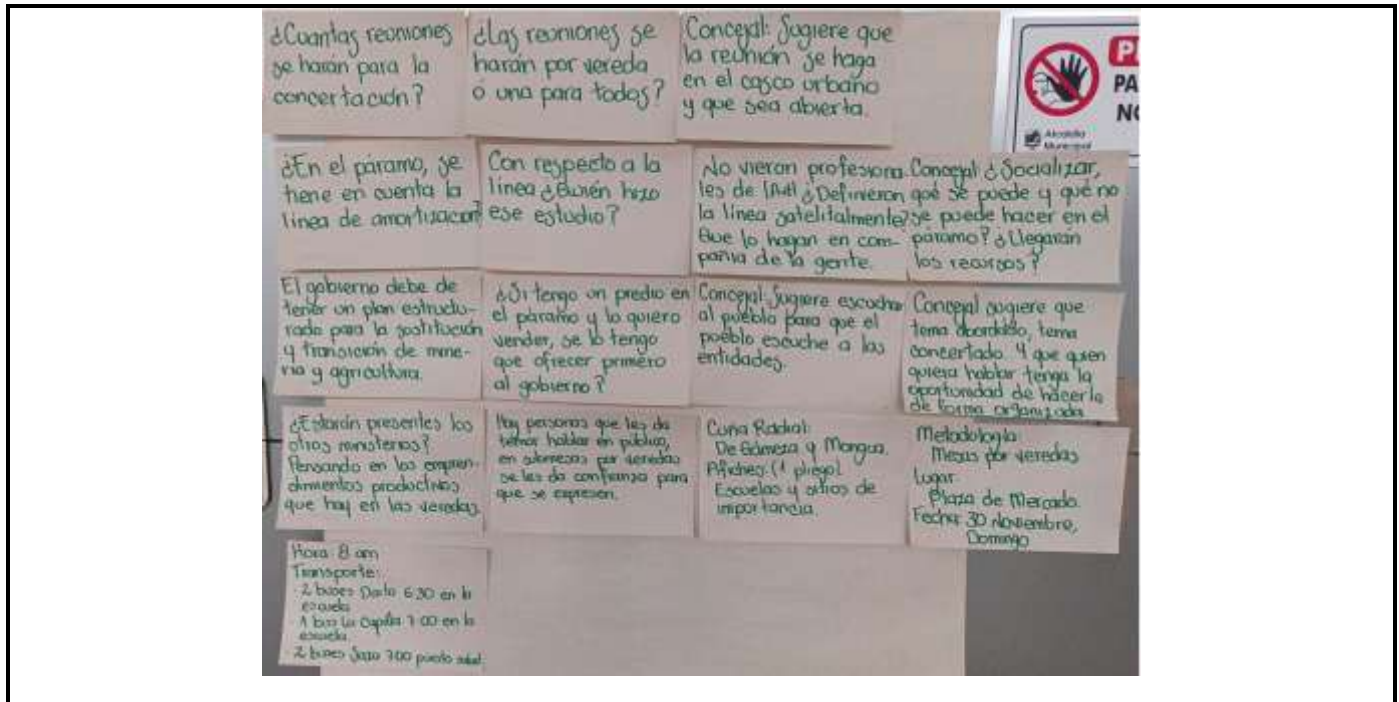 ¿Cuantas reuniones
se harán para la
concertación?
¿Las reuniones se
harán por vereda
ó una para todos?
Concejal: Sugiere que
la reunión se haga
en el casco urbano
y que sea abierta.
PA
NO
Alcaldía
Municipal
¿En el páramo, se
tiene en cuenta la
línea de amortización?
Con respecto a la
línea ¿Quién hizo
ese estudio?
No vieron profesiona-
les de ¿Definieron
la línea satelitalmente?
Que lo hagan en com-
pañia de la gente.
Concejal ¿Socializar,
qué se puede y qué no
se puede hacer en el
páramo? ¿Llegarán
los recursos?
El gobierno debe de
tener un plan estructu-
rado para la sostitución
y transición de mine-
ria y agricultura.
¿Si tengo un predio en
el páramo y lo quiero
vender, se lo tengo
que ofrecer primero
al gobierno?
Concejal: Sugiere escuchar
al pueblo para que el
pueblo escuche a las
entidades.
Concejal sugiere que
tema abordado, tema
concertado. Y que quien
quiera hablar tenga la
oportunidad de hacerlo
de forma organizada
¿Estarán presentes los
otros ministerios?
Pensando en los empren-
dimientos productivos
que hay en las veredas
Hay personas que les da
temor hablar en público,
en submesas por veredas
se les da confianza para
que se expresen.
Cuña Radial:
De Gámeza y Mongua.
Afiches: (1 pliego)
Escuelas y sitios de
importancia.
Metodología:
Mesas por veredas
Lugar:
Plaza de Mercado.
Fecha: 30 Noviembre,
Domingo
Hora: 8 am
Transporte:
2 buses Daita 6:30 en la
escuela
1 bus La Capilla 7:00 en la
escuela.
2 buses Saza 7:00 puesto salud.